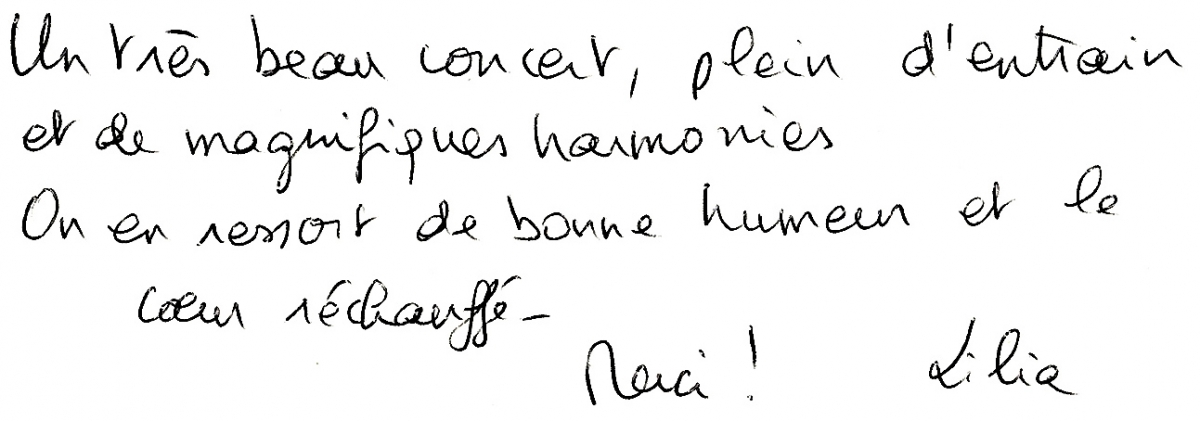 Un très beau concert, plein d'entrain
et de magnifiques harmonies
On en ressort de bonne humeur et le
cœur réchauffé -
Merci ! Lilia